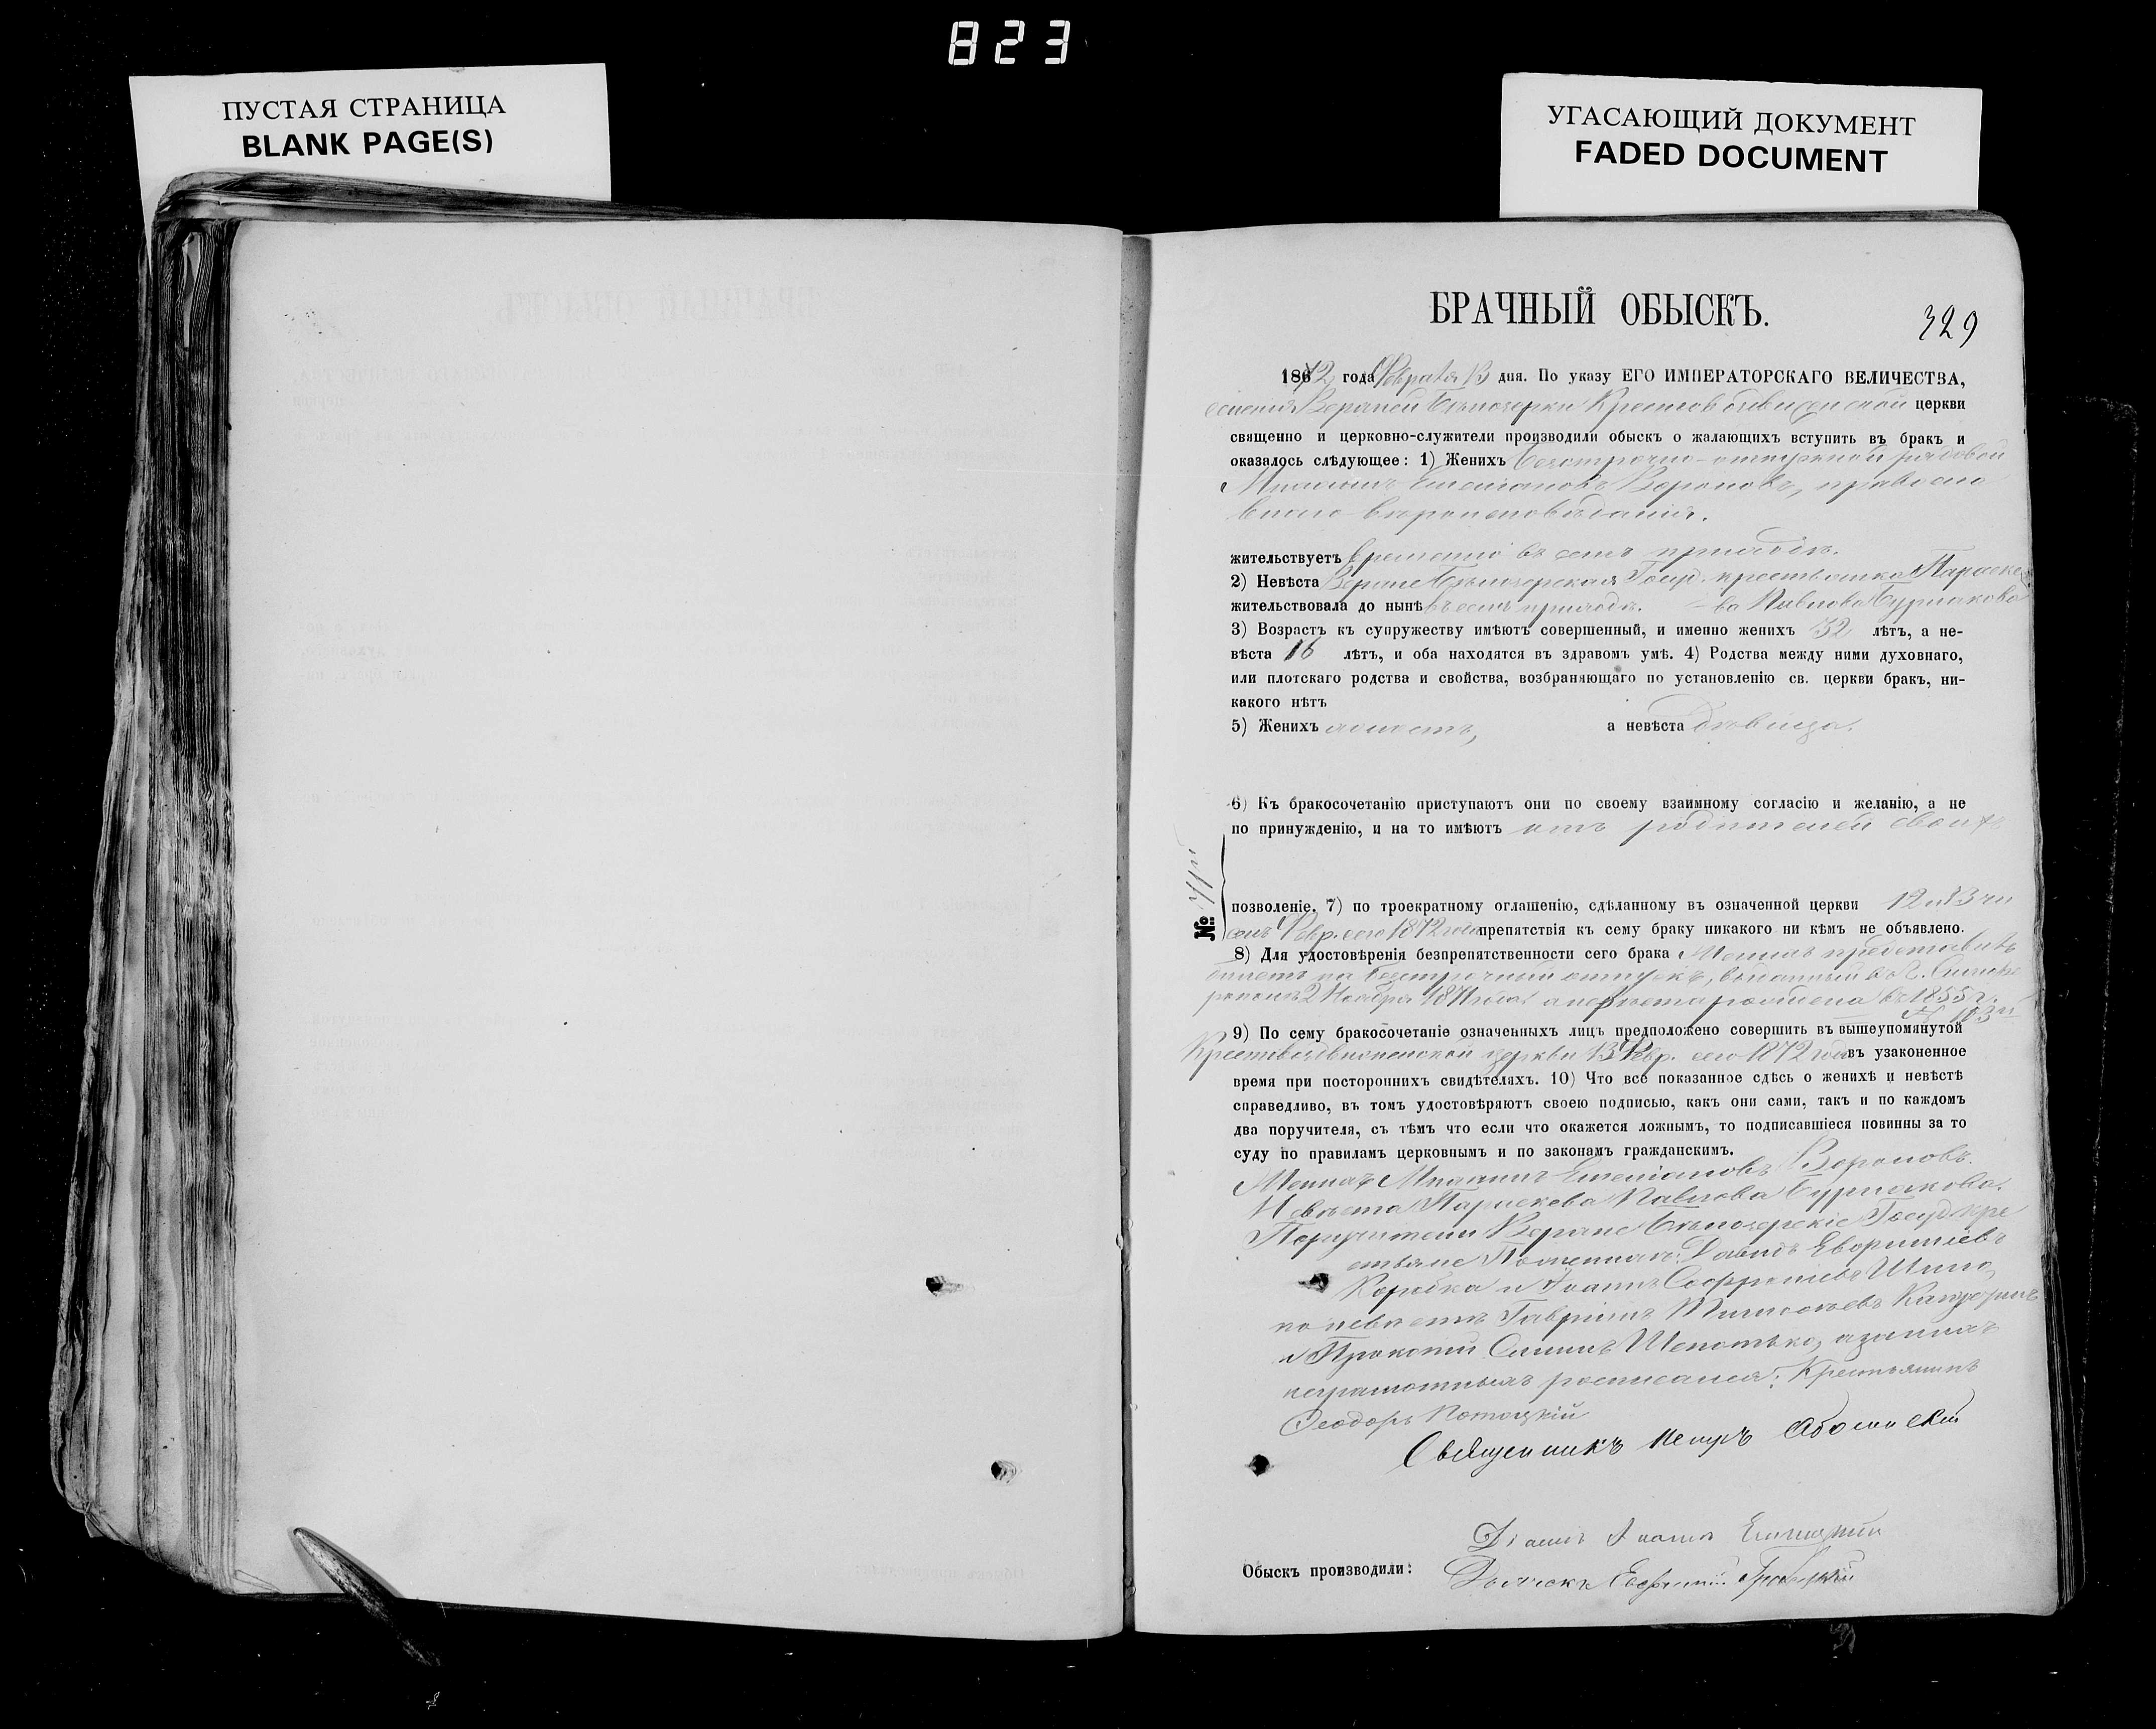 823
ПУСТАЯ СТРАНИЦА
BLANK PAGE(S)
УГАСАЮЩИЙ ДОКУМЕНТ
FADED DOCUMENT
БРАЧНЫЙ ОБЫСКЪ.
329
1872 года Февраля 13 дня. По указу ЕГО ИМПЕРАТОРСКАГО ВЕЛИЧЕСТВА,
Верхней Бѣлозерки Крестовоздвиженской церкви
священно и церковно-служители производили обыскъ о жалающихъ вступить въ бракъ и
оказалось слѣдующее: 1) Женихъ безсрочно-отпускной рядовой
Емеліановъ Вороновъ, правосла
внаго вѣроисповѣданія.
жительствуетъ временно въ семъ приходѣ.
2) Невѣста Верхне Бѣлозерская Госуд. крестьянка Параске
жительствовала до нынѣ въ семъ приходѣ. –ва Павлова Бурлакова
3) Возрастъ къ супружеству имѣютъ совершенный, и именно женихъ 32 лѣтъ, а не-
вѣста 16 лѣтъ, и оба находятся въ здравомъ умѣ. 4) Родства между ними духовнаго,
или плотскаго родства и свойства, возбраняющаго по установленію св. церкви бракъ, ни-
какого нѣтъ
5) Женихъ холостъ, а невѣста дѣвица.
6) Къ бракосочетанію приступаютъ они по своему взаимному согласію и желанію, а не
по принужденію, и на то имѣютъ отъ родителей своихъ
№
позволеніе. 7) по троекратному оглашенію, сдѣланному въ означенной церкви 12 и 13 чи
селъ Февр. сего 1872 года препятствія къ сему браку никакого ни кѣмъ не объявлено.
8) Для удостовѣренія безпрепятственности сего брака Женихъ представилъ
билетъ на безсрочный отпускъ, выданный въ г. Симфе
рополѣ 2 Ноября 1871 года а невѣста рождена въ 1855 г.
9) По сему бракосочетаніе означенныхъ лицъ предположено совершить въ вышеупомянутой
Крестовоздвиженской церкви 13 Февр. сего 1872 года въ узаконенное
время при постороннихъ свидѣтеляхъ. 10) Что все показанное сдѣсь о женихѣ и невѣстѣ
справедливо, въ томъ удостовѣряютъ своею подписью, какъ они сами, такъ и по каждомъ
два поручителя, съ тѣмъ что если что окажется ложнымъ, то подписавшіеся повинны за то
суду по правиламъ церковнымъ и по законамъ гражданскимъ.
Женихъ Емеліановъ Вороновъ.
Невѣста Параскева Павлова Бурлакова.
Поручители Верхне Бѣлозерскіе Госуд. кре
стьяне По женихѣ: Давидъ
Коробка и Іоаннъ Софроніевъ
по невѣстѣ Гавріилъ
и Прокопій а за нихъ
неграмотныхъ росписался: Крестьянинъ
Феодоръ Потоцкій
Священникъ Петръ
Іоаннъ
Обыскъ производили: